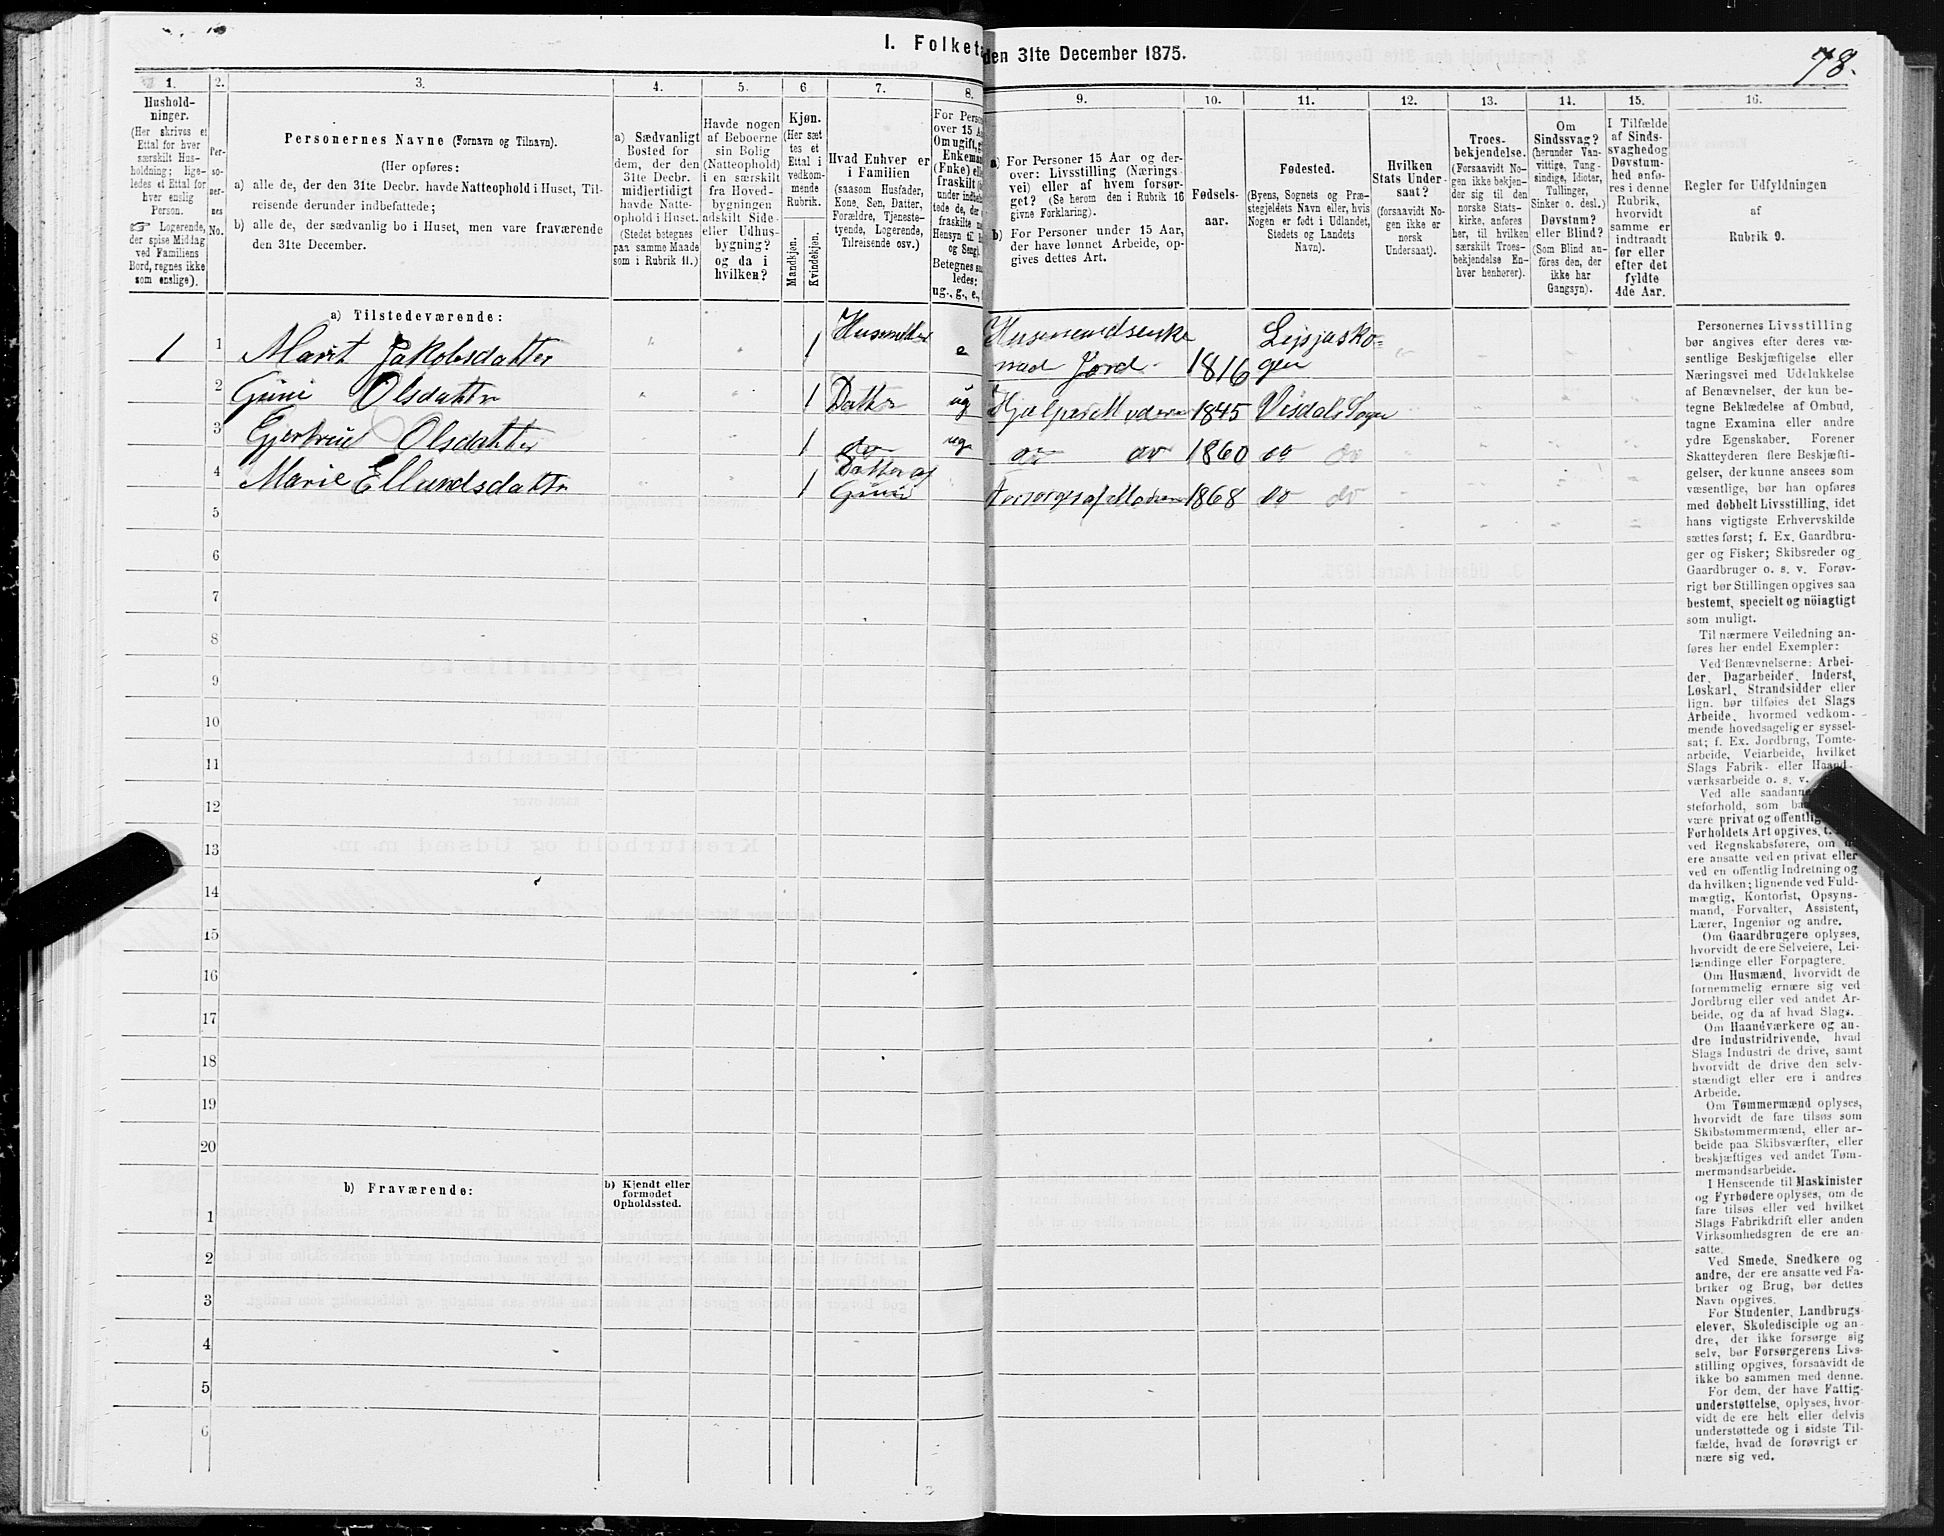 I. Folketa den 31te December 1875.
78.
1.
Hushold-
ninger.
(Her skrives et
Ettal for hver
særskilt Hus-
holdning; lige-
ledes et Ettal for
hver enslig
Person.
☞ Logerende,
der spise Middag
ved Familiens
Bord, regnes ikke
som enslige).
2.
Per-
so-
ner-
nes
No.
3.
Personernes Navne (Fornavn og Tilnavn).
(Her opføres:
a) alle de, der den 31te Decbr. havde Natteophold i Huset, Til-
reisende derunder indbefattede;
b) alle de, der sædvanlig bo i Huset, men vare fraværende
den 31te December.
4.
a) Sædvanligt
Bosted for
dem, der den
31te Decbr.
midlertidigt
havde Natte-
ophold i Huset.
(Stedet betegnes
paa samme Maade
som i Rubrik 11.)
5.
Havde nogen
af Beboerne
sin Bolig
(Natteophold)
i en særskilt
fra Hoved-
bygningen
adskilt Side-
eller Udhus-
bygning?
og da i
hvilken?
6
Kjøn.
(Her sæt
tes et
Ettal i
vedkom-
mende
Rubrik.
Mandkjøn.
Kvindekjøn.
7.
Hvad Enhver er
i Familien
(saasom Husfader,
Kone, Søn, Datter,
Forældre, Tjeneste-
tyende, Logerende,
Tilreisende osv.)
8.
For Person
over 15 Aa
Om ugift, g
Enkeman
(Enke) elle
fraskilt (
under indbe
tede de, der
fraskilte m
Hensyn til B
og Seng).
Betegnes saa
ledes:
ug., g., e.,
9.
a) For Personer 15 Aar og der-
over: Livsstilling (Nærings-
vei) eller af hvem forsør-
get? (Se herom den i Rubrik 16
givne Forklaring).
b) For Personer under 15 Aar,
der have lønnet Arbeide, op-
gives dettes Art.
10.
Fødsels-
aar.
11.
Fødested.
(Byens, Sognets og Præ-
stegjeldets Navn eller, hvis
Nogen er født i Udlandet,
Stedets og Landets
Navn).
12.
Hvilken
Stats Under-
saat?
(forsaavidt No-
gen ikke er
norsk
Undersaat).
13.
Troes-
bekjendelse.
(Forsaavidt No-
gen ikke bekjen-
der sig til den
norske Stats-
kirke, anføres
her, til hvilken
særskilt Troes-
bekjendelse En-
hver henhører).
14.
Om
Sindssvag?
(herunder Van-
vittige, Tung-
sindige, Idioter,
Tullinger,
Sinker o. desl.)
Døvstum?
eller Blind?
(Som Blind an-
føres den, der
ikke har
Gangsyn).
15.
I Tilfælde
af Sinds-
svaghed og
Døvstum-
hed anfø-
res i denne
Rubrik,
hvorvidt
samme er
indtraadt
før eller
efter det
fyldte
4de Aar.
16.
Regler for Udfyldningen
af
Rubrik 9.
a) Tilstedeværende:
1 1 Marit Jakobsdatter 1 Husmoder e Husmandsenke med Jord 1816 Lesjasko=gen
2 Guni Olsdatter 1 Datter ug Hjælper Moderen 1845 Visdals Sogn
3 Gjertrud Olsdatter 1 do ug do do 1860 do do
4 Marie Ellundsdatter 1 Datter af Guni Forsørges af Moderen 1868 do do
5
6
7
8
9
10
11
12
13
14
15
16
17
18
19
20
b) Fraværende:
b) Kjendt eller
formodet
Opholdssted.
1
2
3
4
5
6
Personernes Livsstilling
bør angives efter deres væ-
sentlige Beskjæftigelse eller
Næringsvei med Udelukkelse
af Benævnelser, der kun be-
tegne Beklædelse af Ombud,
tagne Examina eller andre
ydre Egenskaber. Forener
Skatteyderen flere Beskjæfti-
gelser, der kunne ansees som
væsentlige, bør han opføres
med dobbelt Livsstilling, idet
hans vigtigste Erhvervskilde
sættes først; f. Ex. Gaardbru-
ger og Fisker; Skibsreder og
Gaardbruger o. s. v. Forøv-
rigt bør Stillingen opgives saa
bestemt, specielt og nöiagtigt
som muligt.
Til nærmere Veiledning an-
føres her endel Exempler:
Ved Benævnelserne: Arbei-
der, Dagarbeider, Inderst,
Løskarl, Strandsidder eller
lign. bør tilføies det Slags
Arbeide, hvormed vedkom-
mende hovedsagelig er syssel-
sat; f. Ex. Jordbrug, Tomte-
arbeide, Veiarbeide, hvilket
Slags Fabrik- eller Haand-
værksarbeide o. s. v.
Ved alle saadanne
steforhold, som
være privat og offentlig
Forholdets Art opgives, t.
ved Regnskabsførere, om
ere ansatte ved en privat eller
ved en offentlig Indretning og
da hvilken; lignende ved Fuld-
mægtig, Kontorist, Opsyns-
mand, Forvalter, Assistent,
Lærer, Ingeniør og andre.
Om Gaardbrugere oplyses,
hvorvidt de ere Selveiere, Lei-
lændinge eller Forpagtere.
Om Husmænd, hvorvidt de
fornemmelig ernære sig ved
Jordbrug eller ved andet Ar-
beide, og da af hvad Slags.
Om Haandværkere og an-
dre industridrivende, hvad
Slags Industri de drive, samt
hvorvidt de drive den selv-
stændigt eller ere i andres
Arbeide.
Om Tømmermænd oplyses,
hvorvidt de fare tilsøs som
Skibstømmermænd, eller ar-
beide paa Skibsværfter, eller
beskjæftiges ved andet Tøm-
mermandsarbeide.
I Henseende til Maskinister
og Fyrbødere oplyses, om de
fare tilsøs eller ved hvilket
Slags Fabrikdrift eller anden
Virksomhedsgren de ere an-
satte.
Ved Smede, Snedkere og
andre, der ere ansatte ved Fa-
briker og Brug, bør dettes
Navn opgives.
For Studenter, Landbrugs-
elever, Skoledisciple og an-
dre, der ikke forsørge sig
selv, bør Forsørgerens Livs-
stilling opgives, forsaavidt de
ikke bo sammen med denne.
For dem, der have Fattig-
understøttelse, oplyses, hvor-
vidt de ere helt eller delvis
understøttede og i sidste Til-
fælde, hvad de forøvrigt er
nære sig ved.